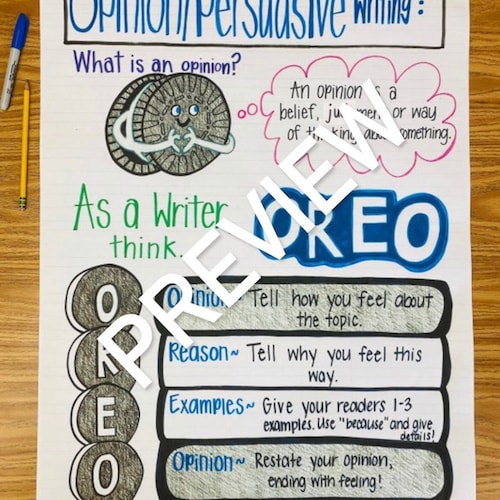 Opinion/Persuasive writing:
What is an opinion?
An opinion is a
belief, judgment, or way
of thinking about something.
As a Writer
think...
OREO
PREVIEW
O
R
E
O
Opinion~ Tell how you feel about
the topic.
Reason~ Tell why you feel this
way.
Examples~ Give your readers 1-3
examples. Use "because" and give
details!
Opinion~ Restate your opinion,
ending with feeling!